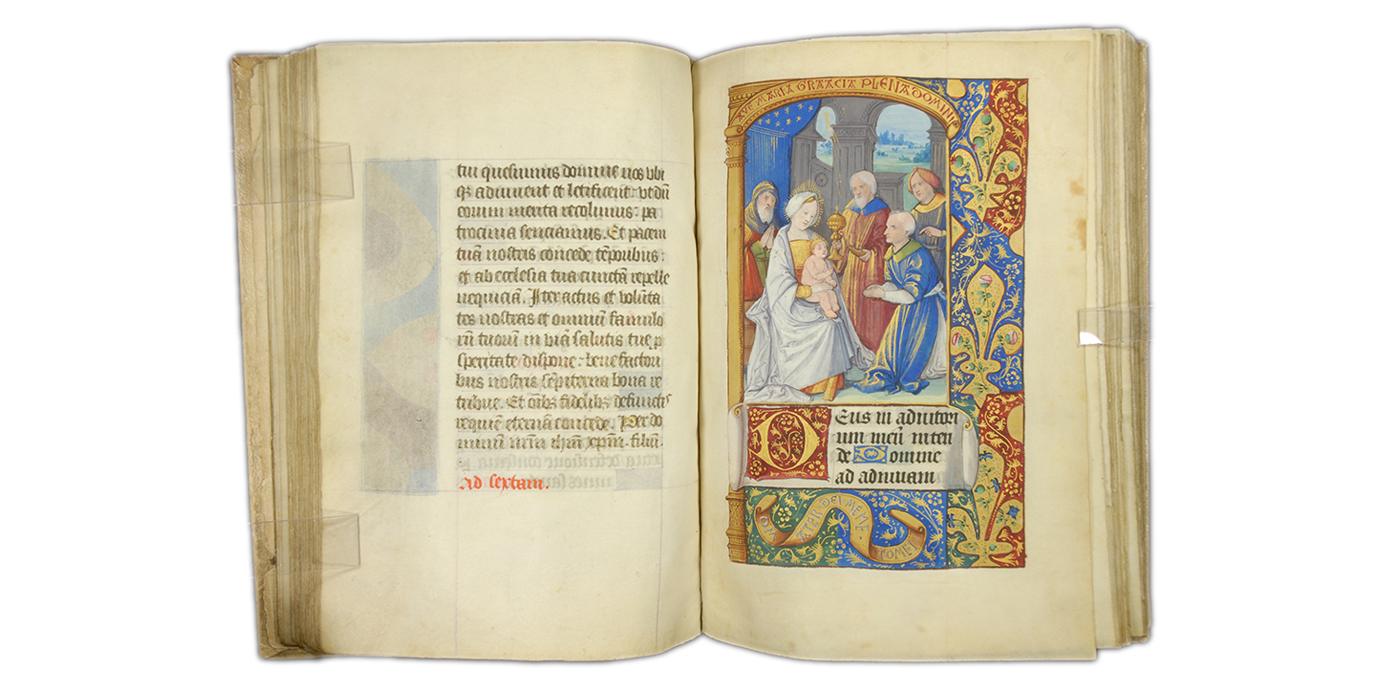 tui quesumus domine nos vbi
qꝫ adiuuent et letificent: vt dū
eorum merita recolimus: pa
trocinia senciamus. Et pacem
tuā nostris concede tēporibus:
et ab ecclesia tua cunctā repelle
nequiciā. Iter actus et volūta
tes nostras et omniū famulo
rū tuorū in viā salutis tue ꝓ
speritate dispone: benefactori
bus nostris sēpiterna bona re
tribue. Et oībꝫ fidelibꝫ defunctis
requiē eternā concede. Per do
minum nrm̄ ihm̄ xpm̄. filiū.
Ad sextam.
AVE MARIA GRAACIA PLENA DOMINI
Deus in adiutori
um meū inten
de Domine
ad adiuuam
O MATER DEI MEME
TOMEI